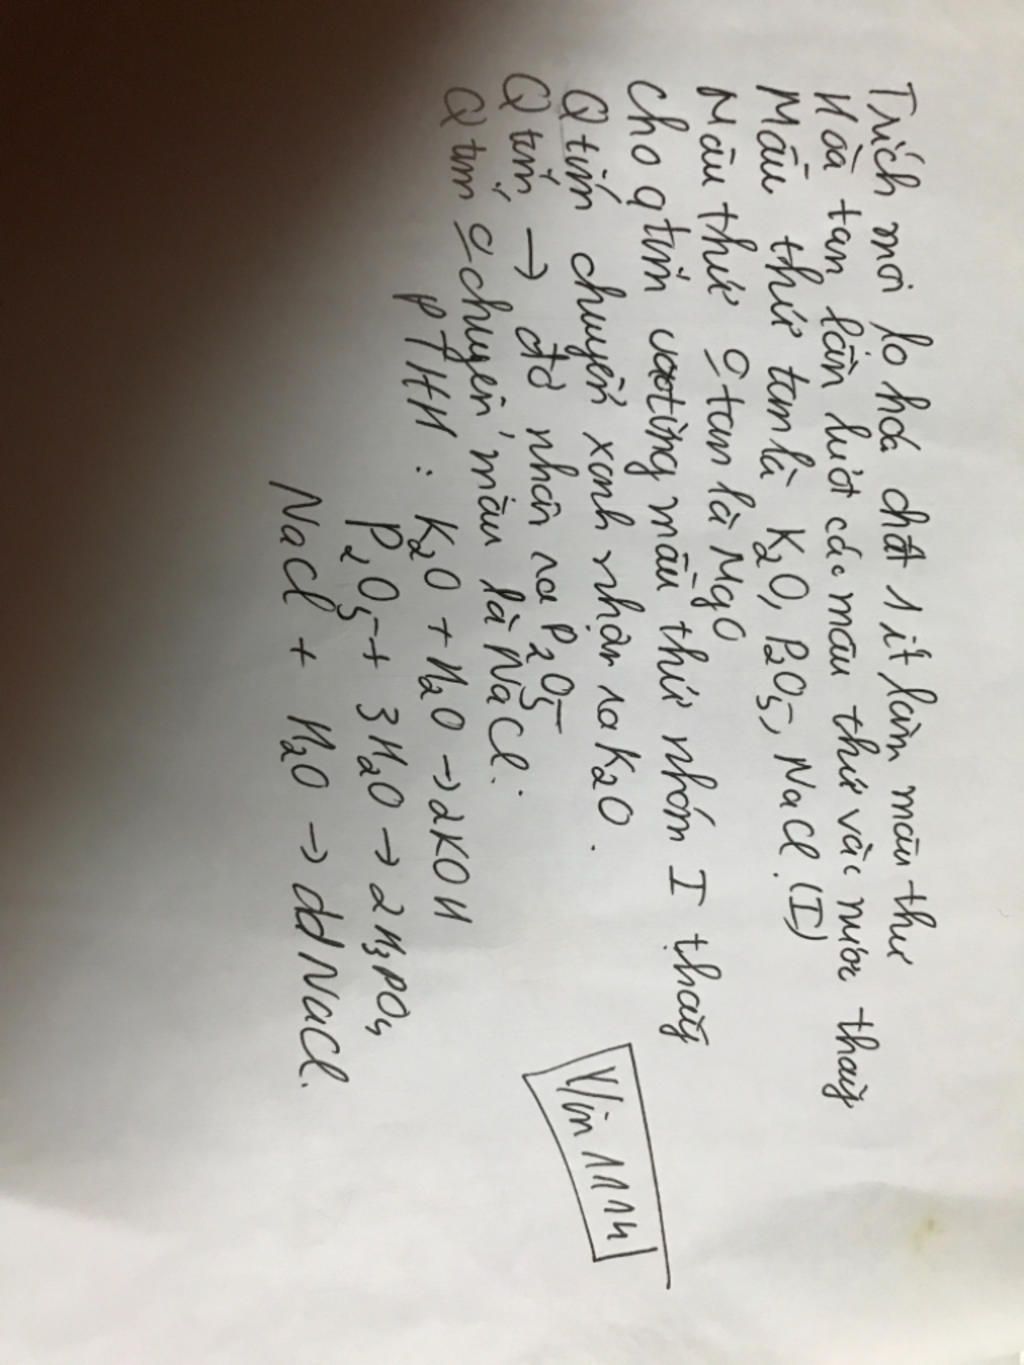 Trích mỗi lọ hóa chất 1 ít làm mẫu thử
Hòa tan lần lượt các mẫu thử vào nước thấy
Mẫu thử tan là K2O, P2O5, NaCl. (I)
Mẫu thử o tan là MgO
Cho q tím vào từng mẫu thử nhóm I thấy
Q tím chuyển xanh nhận ra K2O.
Q tím → đỏ nhận ra P2O5
Q tím o chuyển màu là NaCl.
PTHH: K2O + H2O → 2KOH
P2O5 + 3H2O → 2H3PO4
NaCl + H2O → dd NaCl.